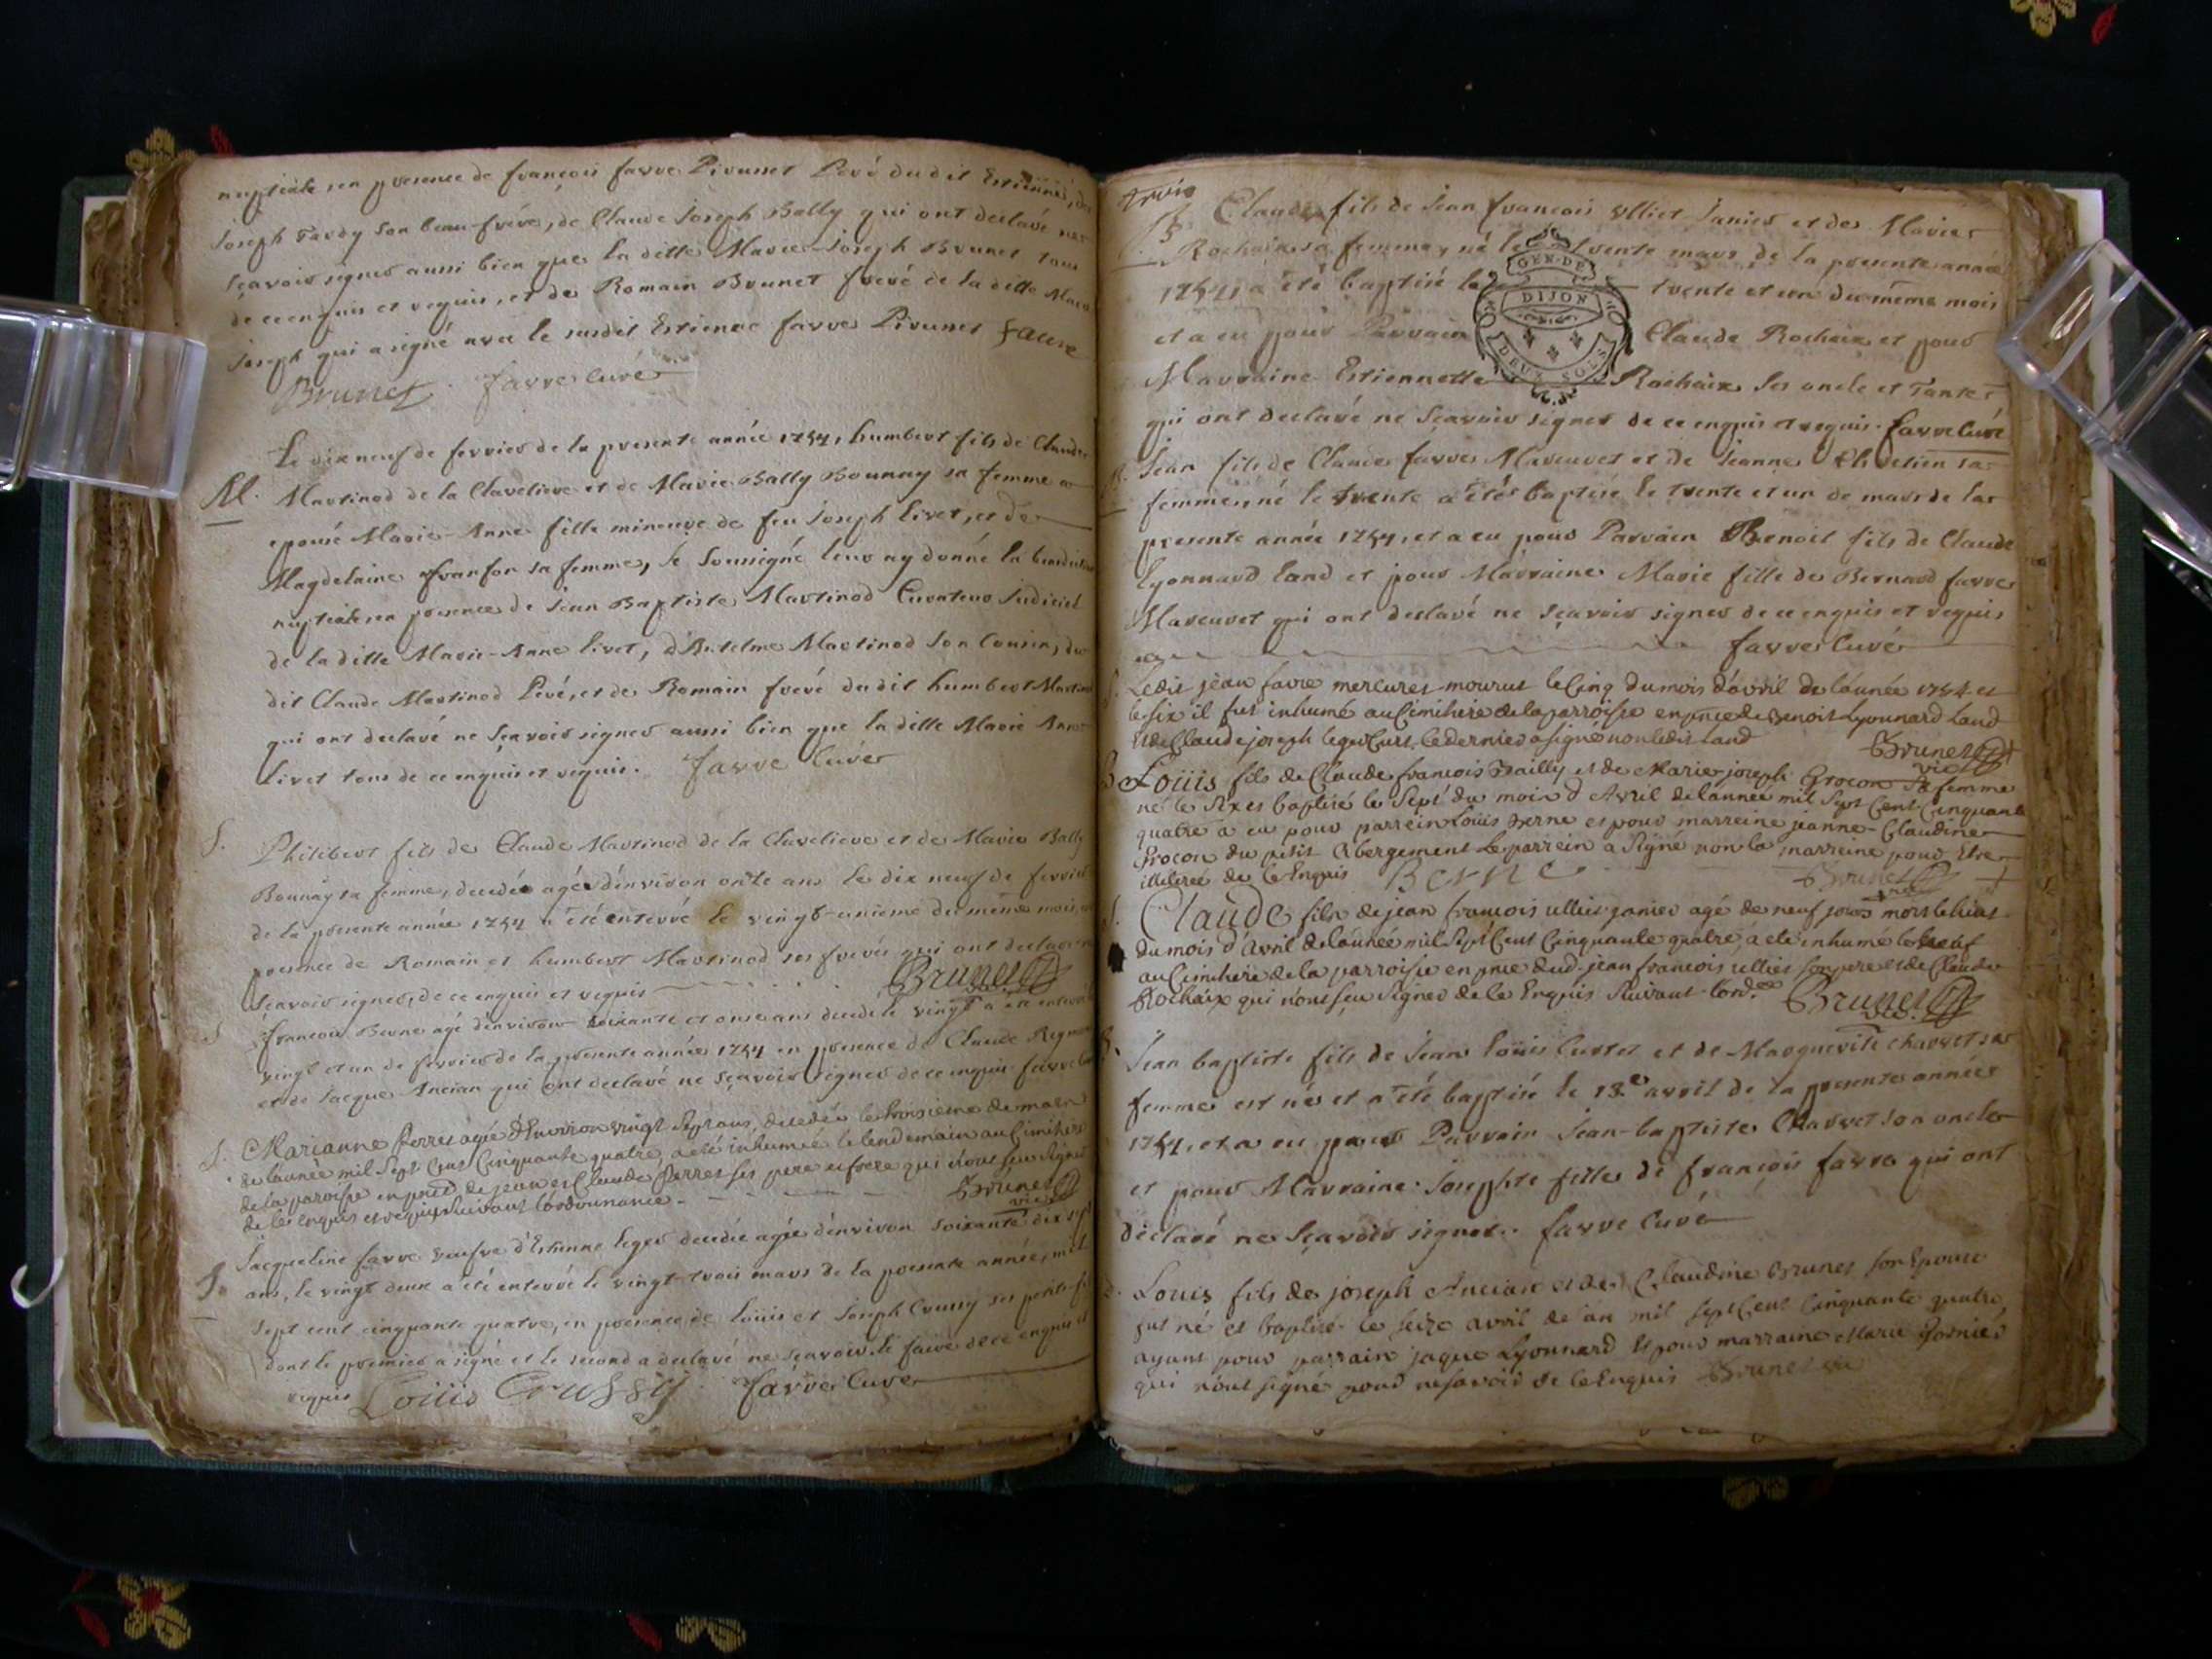 nuptiale en presence de françois favre Pirunet Peré dudit Estienne, de
Joseph Tardy son beau-frére, de Claude Joseph Bally qui ont declaré ne
sçavoir signer aussi bien que la ditte Marie-Joseph Brunet tous
de ce enquis et requis, et de Romain Brunet freré de la ditte Marie
Joseph qui a signé avec le susdit Estienne favre Pirunet favre
Brunet favre Curé
Le dix neuf de fevrier de la presente année 1754, humbert fils de Claude
M. Martinod de la Claveliere et de Marie Bally Bounay sa femme a
epousé Marie-Anne fille mineure de feu Joseph Livet, et de
Magdelaine sa femme, Je soussigné leur ay donné la benediction
nuptiale en presence de Jean Baptiste Martinod Curateur Judiciel
de la ditte Marie-Anne livet, d'Antelme Martinod son Cousin, du
dit Claude Martinod Peré, et de Romain freré dudit humbert Martinod
qui ont declaré ne sçavoir signer aussi bien que la ditte Marie Anne
Livet tous de ce enquis et requis. favre Curé
S. Philibert fils de Claude Martinod de la Claveliere et de Marie Bally
Bounay sa femme, decedé agé d'environ onze ans le dix neuf de fevrier
de la presente année 1754 a été enterré le vingt-unieme du méme mois, en
presence de Romain et humbert Martinod ses freres qui ont declaré ne
sçavoir signer, de ce enquis et requis Brunet vic.
S françois Berne agé d'environ soixante et onze ans decedé le vingt a été enterré le
vingt et un de fevrier de la presente année 1754 en presence de Claude
et de Jacque Ancian qui ont declaré ne sçavoir signer de ce enquis favre Curé
S. Marianne perret agée d'Environ vingt Sept ans, decedée le troisieme de mars
de l'année mil Sept Cent Cinquante quatre, a eté inhumée le lendemain au Cimitiere
de la paroisse en pnce de jean et Claude Perret ses pere et frere qui n'ont sçu Signer
de Ce enquis et requis suivant l'ordonnance. Brunet vic
S. Jacqueline favre veufve d'Estienne leger decedée agée d'environ soixante dix sept
ans, le vingt deux a été enterré le vingt-trois mars de la presente année, mil
sept cent cinquante quatre, en presence de Loüis et Joseph Crussy ses petits-fils
dont le premier a signé et le second a declaré ne sçavoir le faire de ce enquis et
requis Loüis Crussy favre Curé
trois
B. Claude fils de Jean françois Ulliet Janier et de Marie
Rochaix sa femme, né le trente mars de la presente année
1754, a été baptisé le trente et un du méme mois
et a eu pour Parrain Claude Rochaix et pour
Marraine Estiennette Rochaix ses oncle et Tante
qui ont declaré ne sçavoir signer de ce enquis et requis. favre Curé
GEN. DE
DIJON
DEUX SOLS
B. Jean fils de Claude favre Mercuret et de Jeanne Chretien sa
femme, né le trente a été baptisé le trente et un de mars de la
presente année 1754, et a eu pour Parrain Benoit fils de Claude
Lyonnard Land et pour Marraine Marie fille de Bernard favre
Mercuret qui ont declaré ne sçavoir signer de ce enquis et requis
favre Curé
S. Ledit jean favre mercuret mourut le Cinq du mois d'avril de l'année 1754 et
le six il fut inhumé au Cimitiere de la parroisse en pnce de Benoit Lyonnard Land
et de Claude joseph leger Curt. le dernier a signé non ledit Land Brunet vic
B Loüis fils de Claude françois Bailly et de Marie joseph Grocon sa femme
né le six et baptisé le Sept du mois d Avril de l'année mil Sept Cent Cinquante
quatre a eu pour parrein Loüis Berne et pour marreine jeanne-Claudine
Grocon du petit Abergement le parrein a Signé non la marreine pour Etre
illiterée de Ce Enquis Berne Brunet vic
S. Claude fils de jean françois ulliet janier agé de neuf jours mort le huit
du mois d'Avril de l'année mil Sept Cent Cinquante quatre, a eté inhumé le neuf
au Cimitiere de la parroisse en pnce dud. jean françois ulliet son pere et de Claude
Rochaix qui n'ont sçu Signer de Ce Enquis suivant l'ord.ce Brunet vic.
B. Jean baptiste fils de Jean loüis Curtet et de Marguerite Charvet sa
femme est né et a été baptisé le 13.e avril de la presente année
1754, et a eu pour Parrain Jean-baptiste Charvet son oncle
et pour Marraine Josephte fille de françois favre qui ont
declaré ne sçavoir signer. favre Curé
B. Louis fils de joseph Ancian et de Claudine Brunet son Epouse
fut né et baptisé le seize avril de l'an mil sept Cent Cinquante quatre
ayant pour parrain jaque Lyonnard et pour marraine Marie fornier
qui n'ont signé pour ne savoir de Ce Enquis Brunet vic